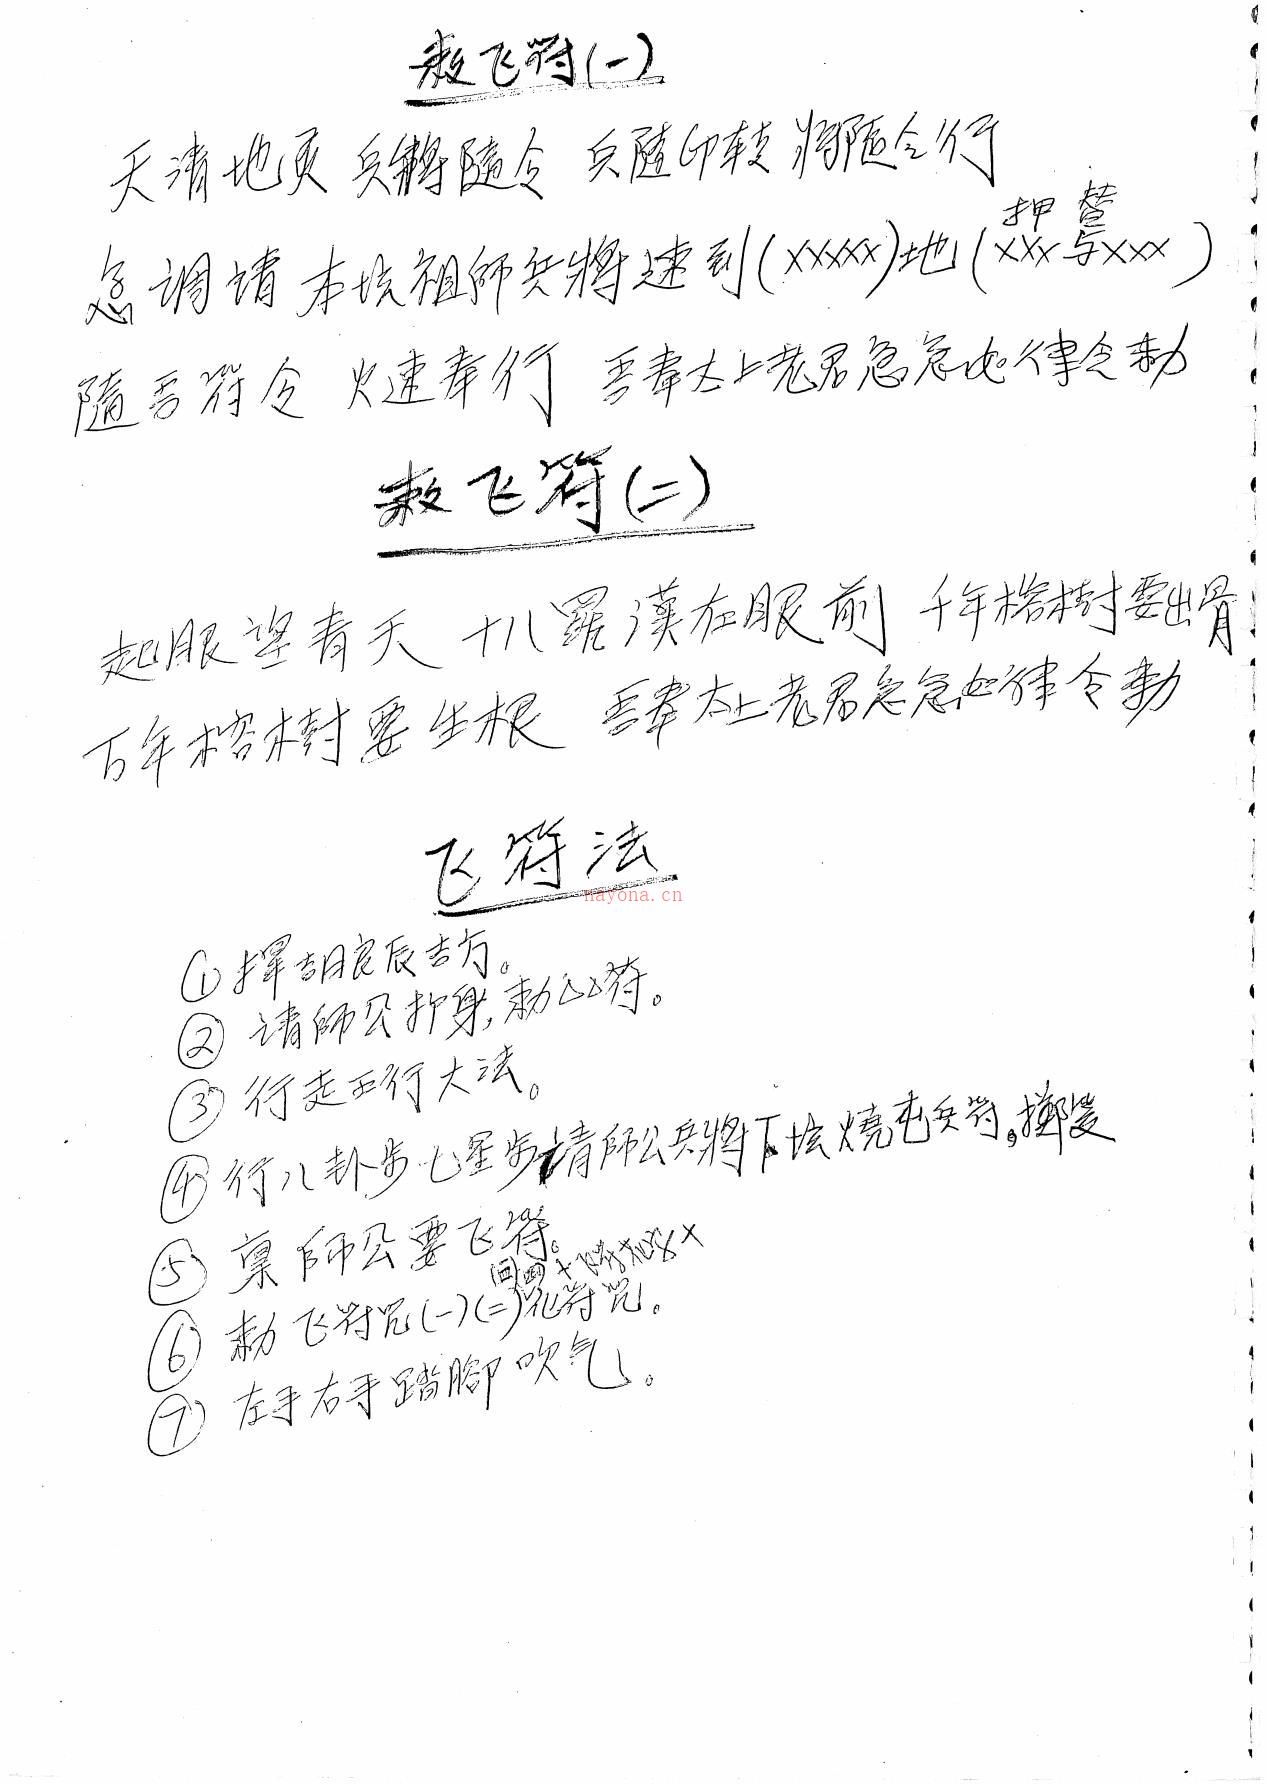 敕飞符(一)
天清地灵 兵將隨令 兵隨印转 將隨令行
押 替
急调请本坛祖師兵將速到(xxxxx)地(xxx与xxx)
隨吾符令 火速奉行 吾奉太上老君急急如律令勅
敕飞符(二)
起眼望青天 十八羅漢在眼前 千年榕樹要出骨
万年榕樹要生根 吾奉太上老君急急如律令勅
飞符法
nayona.cn
① 擇良辰吉方。
② 请師公护身,勅符。
③ 行走五行大法。
④ 行八卦步七星步请師公兵將下坛燒屯兵符。擲筊
⑤ 稟師公要飞符。
(三)(四)+
⑥ 勅飞符咒(一)(二)化符咒。
⑦ 左手右手踏腳吹气。